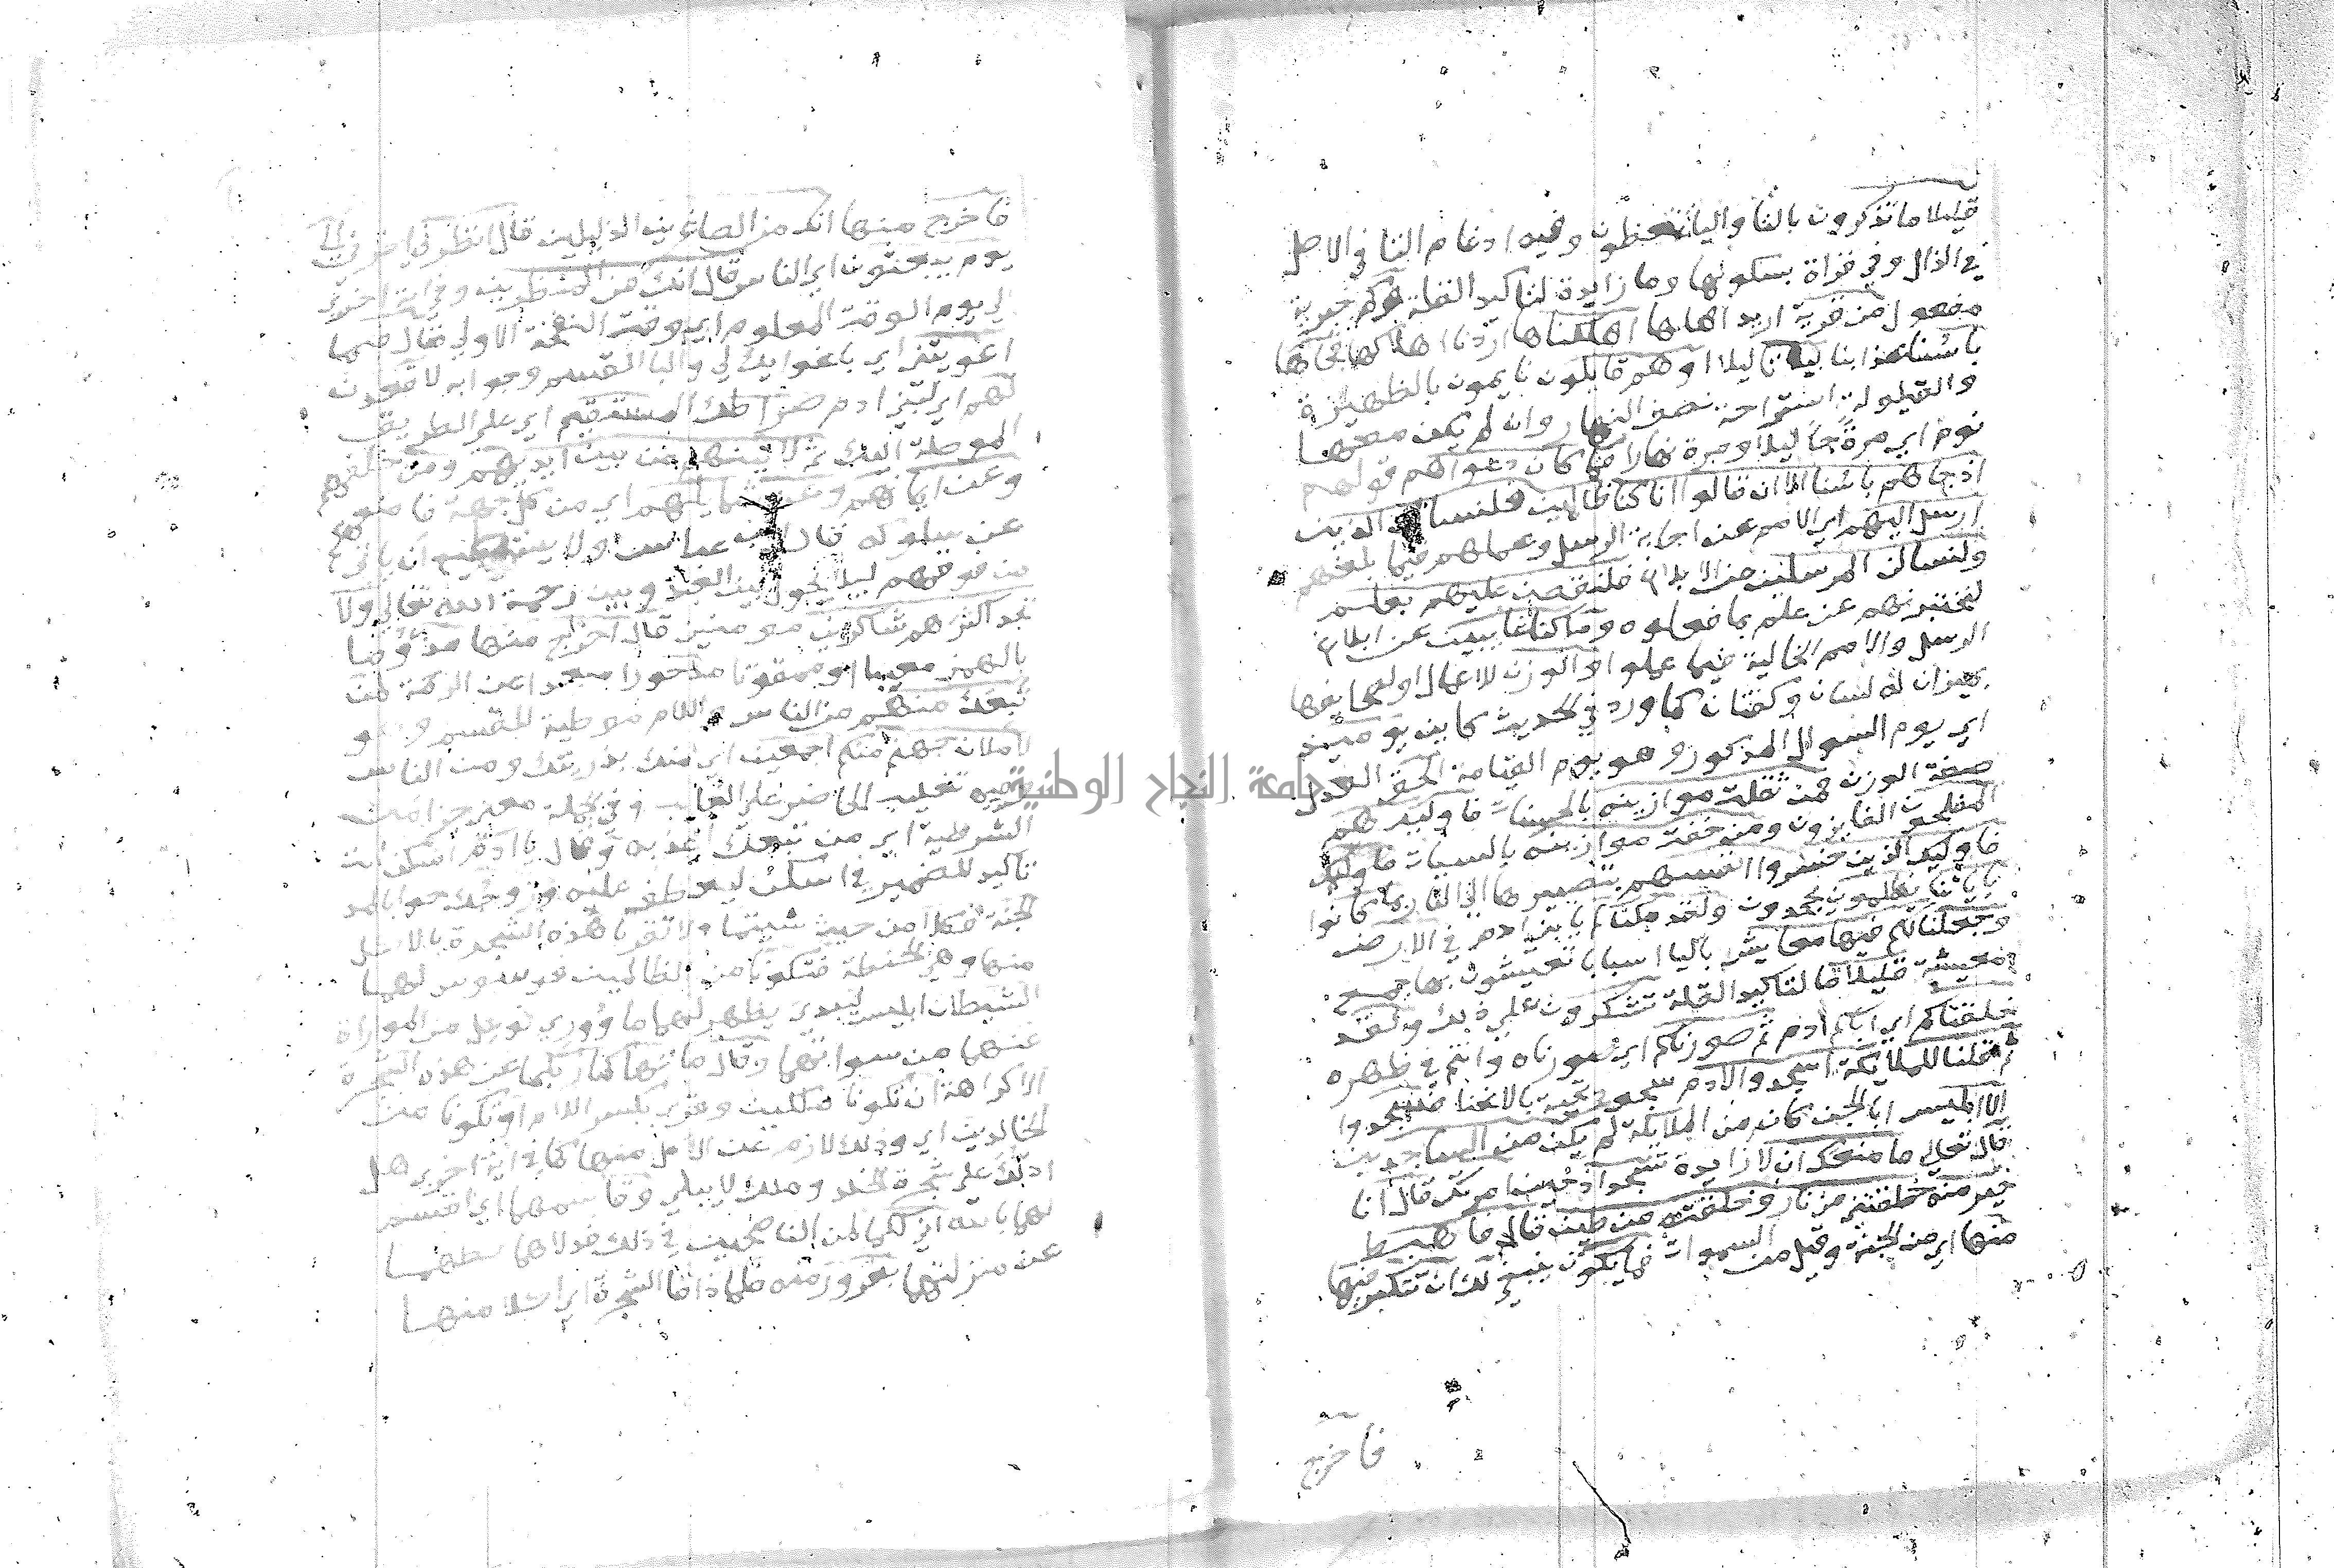 قليلا ما تذكرون بالتا واليا تتعظون وفيه ادغام التا في الاصل
في الذال وفي قراة بسكونها وما زايدة لتاكيد القلة وكم خبرية
مفعول من قرية اريد اهلها اهلكناها اردنا اهلاكها فجاها
باسنا عذابنا بياتا ليلا او هم قايلون نايمون بالظهيرة
والقيلولة استراحة نصف النهار وان لم يكن معها
نوم اي مرة جا ليلا ومرة نهارا فما كان دعواهم قولهم
اذ جاهم باسنا الا ان قالوا انا كنا ظالمين فلنسالن الذين
ارسل اليهم اي الامم عن اجابة الرسل وعملهم فيما بلغهم
ولنسالن المرسلين عن الابلاغ فلنقصن عليهم بعلم
لنخبرنهم عن علم بما فعلوه وما كنا غايبين عن ابلاغ
الرسل والامم الخالية فيما عملوا والوزن للاعمال او لصحايفها
بميزان له لسان وكفتان كما ورد في الحديث كاين يوميذ
اي يوم السوال المذكور وهو يوم القيامة الحق العدل
صفة الوزن فمن ثقلت موازينه بالحسنات فاوليك هم
المفلحون الفايزون ومن خفت موازينه بالسيات فاوليك
فاوليك الذين خسروا انفسهم بتصييرها الى النار بما كانوا
باياتنا يظلمون يجحدون ولقد مكناكم يا بني ادم في الارض
وجعلنا لكم فيها معايش باليا اسبابا تعيشون بها جمع
معيشة قليلا ما لتاكيد القلة تشكرون على ذلك ولقد
خلقناكم اي اباكم ادم ثم صورناكم اي صورناه وانتم في ظهره
ثم قلنا للملايكة اسجدوا لادم سجود تحية بالانحنا فسجدوا
الا ابليس ابا الجن كان من الملايكة لم يكن من الساجدين
قال تعالى ما منعك ان لا زايدة تسجد اذ حين امرتك قال انا
خير منه خلقتني من نار وخلقته من طين قال فاهبط
منها اي من الجنة وقيل من السموات فما يكون ينبغي لك ان تتكبر فيها
فاخرج
فاخرج منها انك من الصاغرين الذليلين قال انظرني اخرني الى
يوم يبعثون اي الناس قال انك من المنظرين وفي اية اخرى
الى يوم الوقت المعلوم اي وقت النفخة الاولى قال فبما
اغويتني اي باغوايك لي والبا القسم وجوابه لاقعدن
لهم اي لبني ادم صراطك المستقيم اي على الطريق
الموصلة اليك ثم لاتينهم من بين ايديهم ومن خلفهم
وعن ايمانهم وعن شمايلهم اي من كل جهة فامنعهم
عن سلوكه قال ابن عباس ولا يستطيع ان ياتي
من فوقهم ليلا يحول بين العبد وبين رحمة الله تعالى ولا
تجد اكثرهم شاكرين مومنين قال اخرج منها مذؤما
بالهمز معيبا او ممقوتا مدحورا مبعدا عن الرحمة لمن
تبعك منهم من الناس واللام موطية للقسم وهو
لاملان جهنم منكم اجمعين اي منك بذريتك ومن الناس
وفيه تغليب الحاضر على الغايب وفي الجملة معنى جزا من
الشرطية اي من تبعك اعذبه وقال يا ادم اسكن انت
تاكيد للضمير في اسكن ليعطف عليه وزوجك حوا بالمد
الجنة فكلا من حيث شيتما ولا تقربا هذه الشجرة بالاكل
منها وهي الحنطة فتكونا من الظالمين فوسوس لهما
الشيطان ابليس ليبدي يظهر لهما ما ووري فوعل من المواراة
عنهما من سواتهما وقال ما نهاكما ربكما عن هذه الشجرة
الا كراهة ان تكونا ملكين وقري بكسر اللام او تكونا من
الخالدين اي وذلك لازم عن الاكل منها كما في اية اخرى هل
ادلك على شجرة الخلد وملك لا يبلى وقاسمهما اي اقسم
لهما بالله اني لكما لمن الناصحين في ذلك فدلاهما حطهما
عن منزلتهما بغرور منه فلما ذاقا الشجرة اي اكلا منها
جامعة النجاح الوطنية